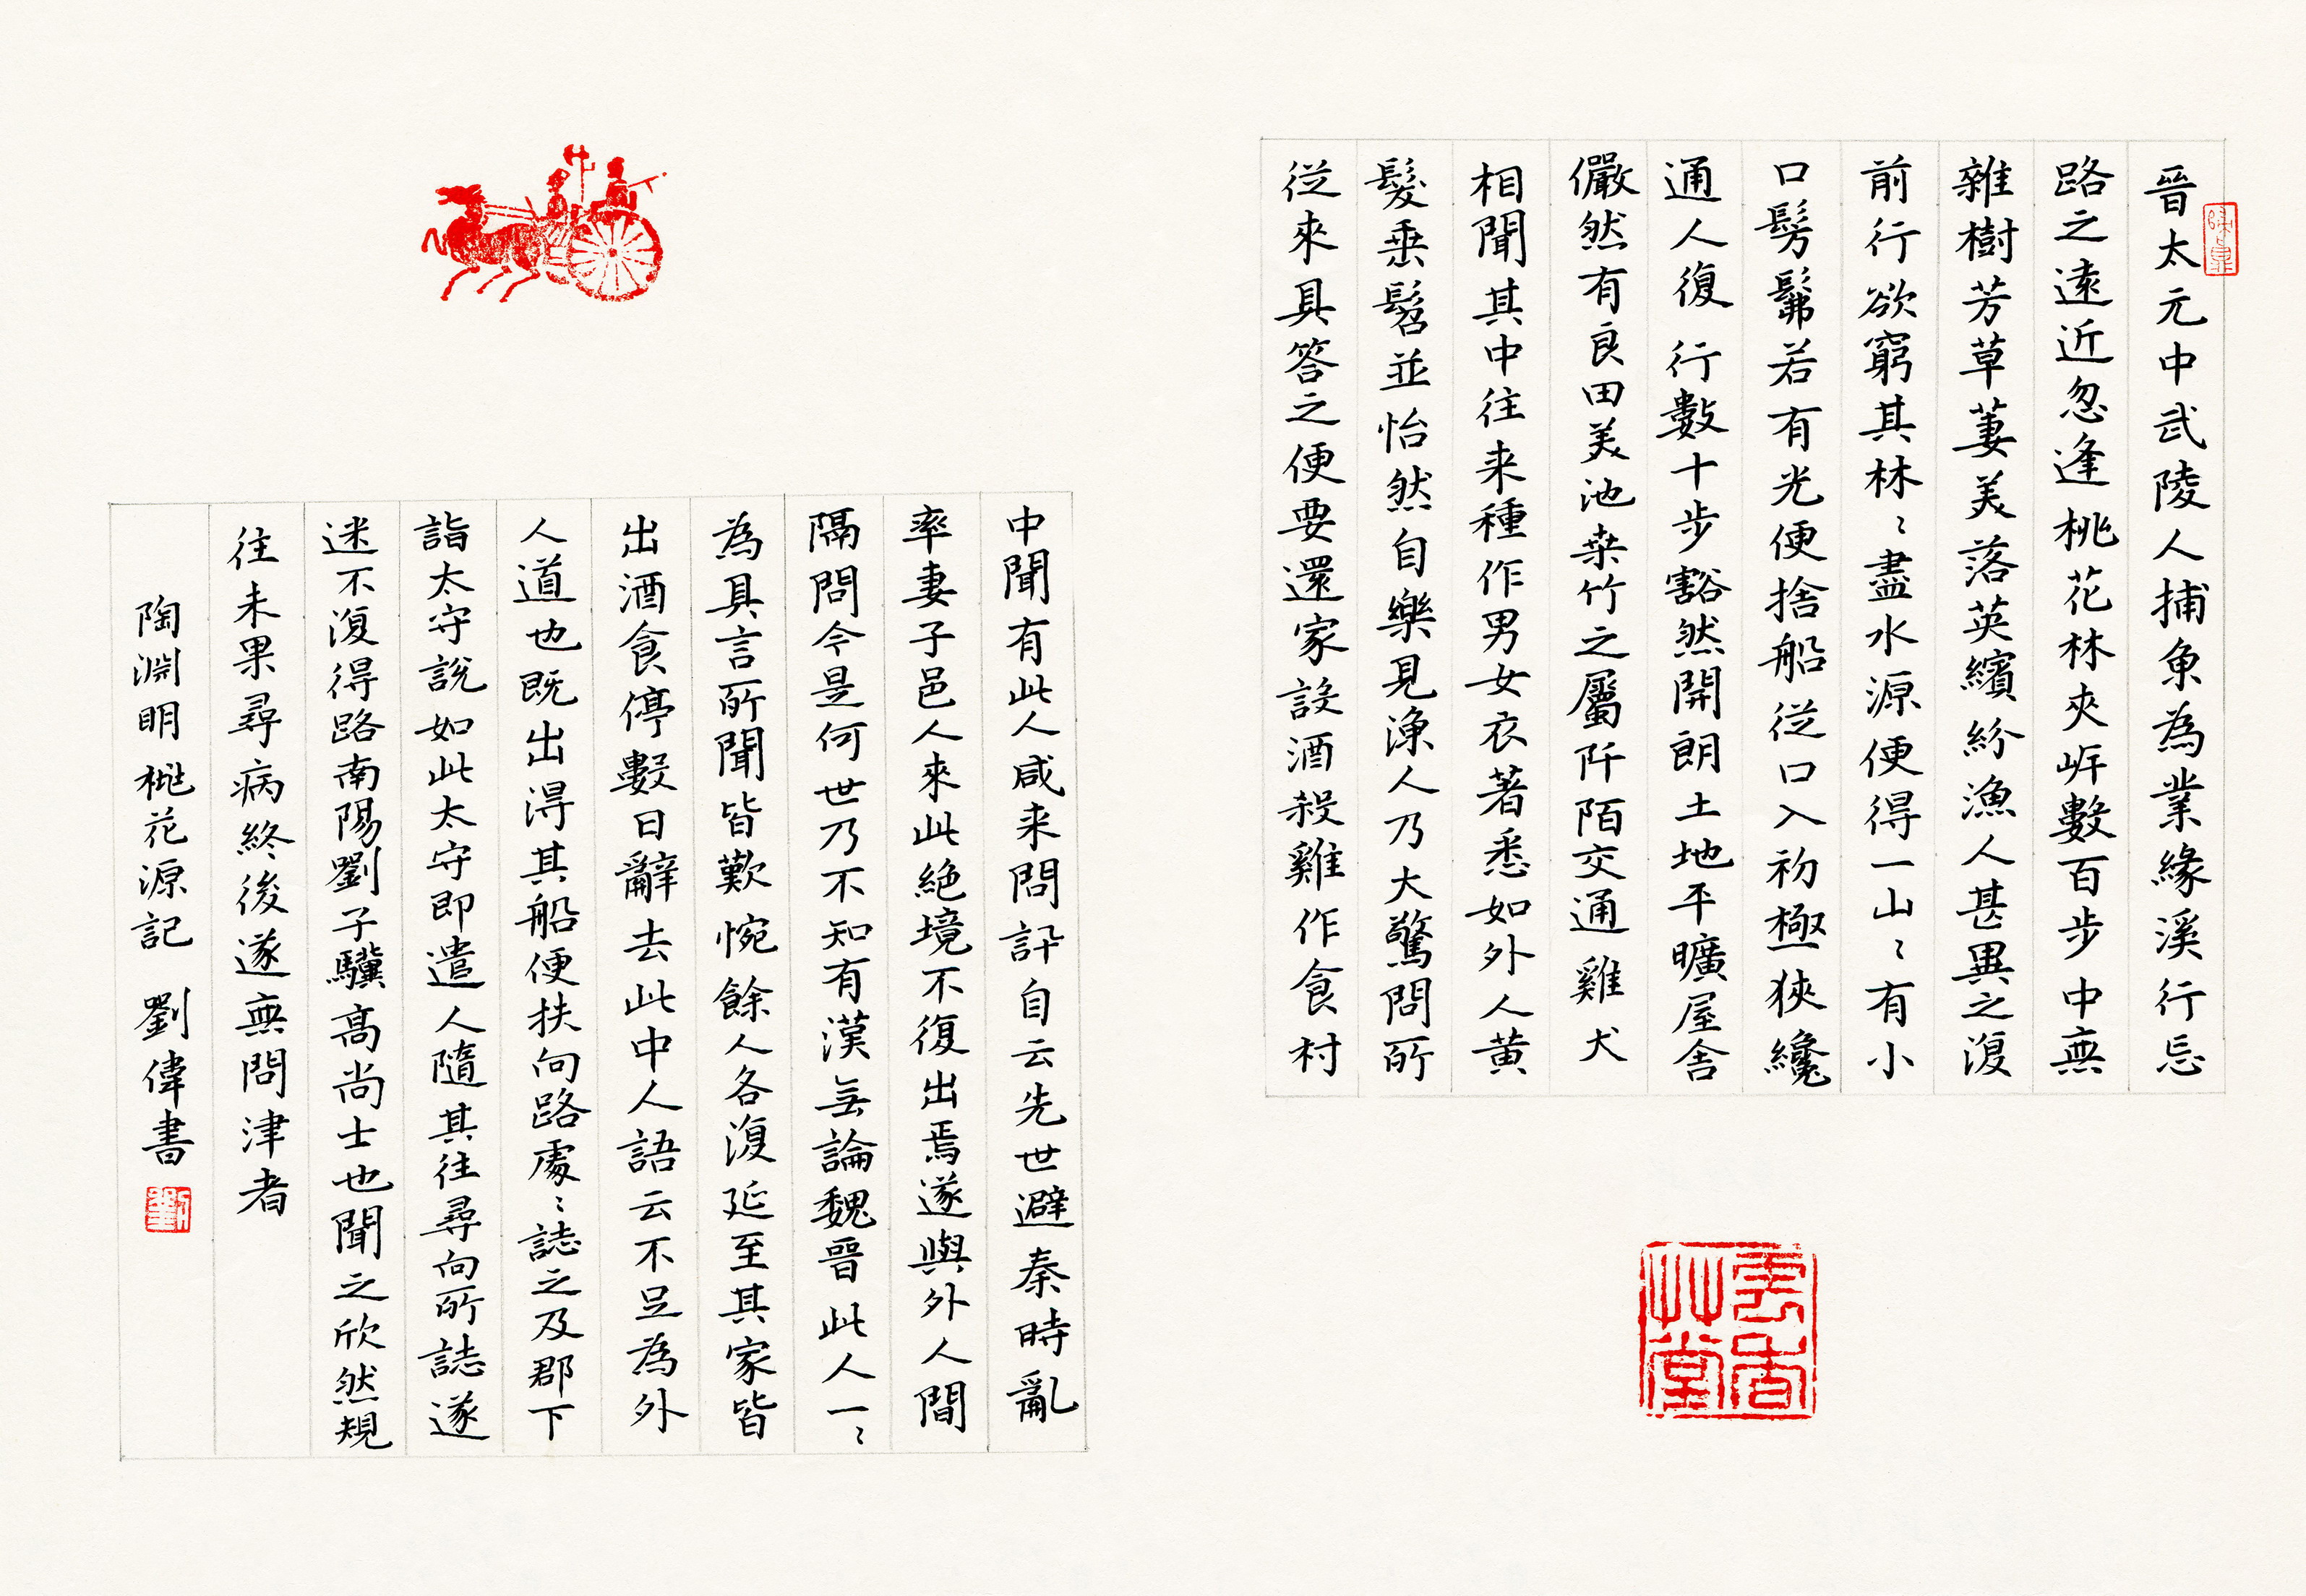 晉太元中武陵人捕魚為業緣溪行忘
路之遠近忽逢桃花林夾岸數百步中無
雜樹芳草萋美落英繽紛漁人甚異之復
前行欲窮其林〻盡水源便得一山〻有小
口髣髴若有光便捨船從口入初極狹纔
通人復行數十步豁然開朗土地平曠屋舍
儼然有良田美池桒竹之屬阡陌交通雞犬
相聞其中往来種作男女衣著悉如外人黄
髮垂髫並怡然自樂見漁人乃大驚問所
從來具答之便要還家設酒殺雞作食村
中聞有此人咸来問訊自云先世避秦時亂
率妻子邑人來此絕境不復出焉遂與外人間
隔問今是何世乃不知有漢無論魏晉此人一〻
為具言所聞皆歎惋餘人各復延至其家皆
出酒食停數日辭去此中人語云不足為外
人道也既出得其船便扶向路處〻誌之及郡下
詣太守說如此太守即遣人隨其往尋向所誌遂
迷不復得路南陽劉子驥高尚士也聞之欣然規
往未果尋病終後遂無問津者
陶淵明桃花源記 劉偉書
劉
雲香艸堂